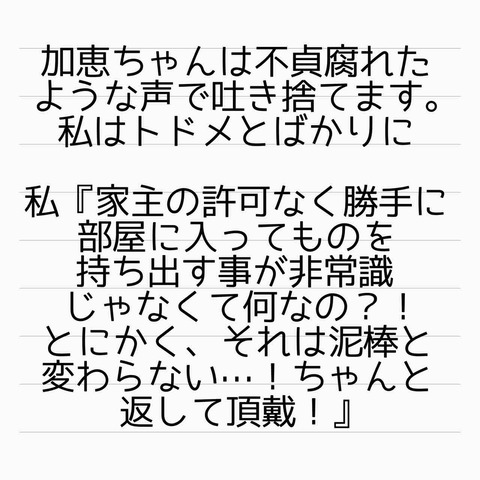 加恵ちゃんは不貞腐れた
ような声で吐き捨てます。
私はトドメとばかりに
私『家主の許可なく勝手に
部屋に入ってものを
持ち出す事が非常識
じゃなくて何なの?!
とにかく、それは泥棒と
変わらない…!ちゃんと
返して頂戴!』